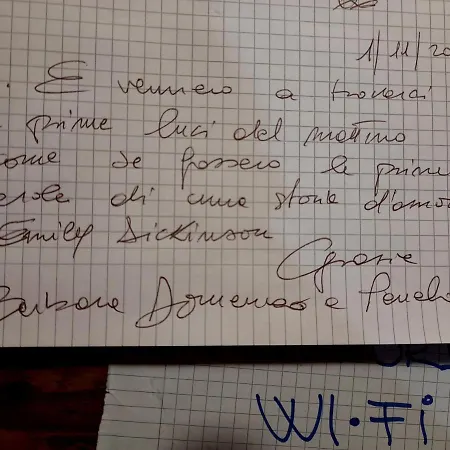 1/11/20
. E vennero a trovarci
prime luci del mattino
come se fossero le prime
parole di una storia d'amor
Emily Dickinson
Grazie
Barbara Domenico e
WI-Fi